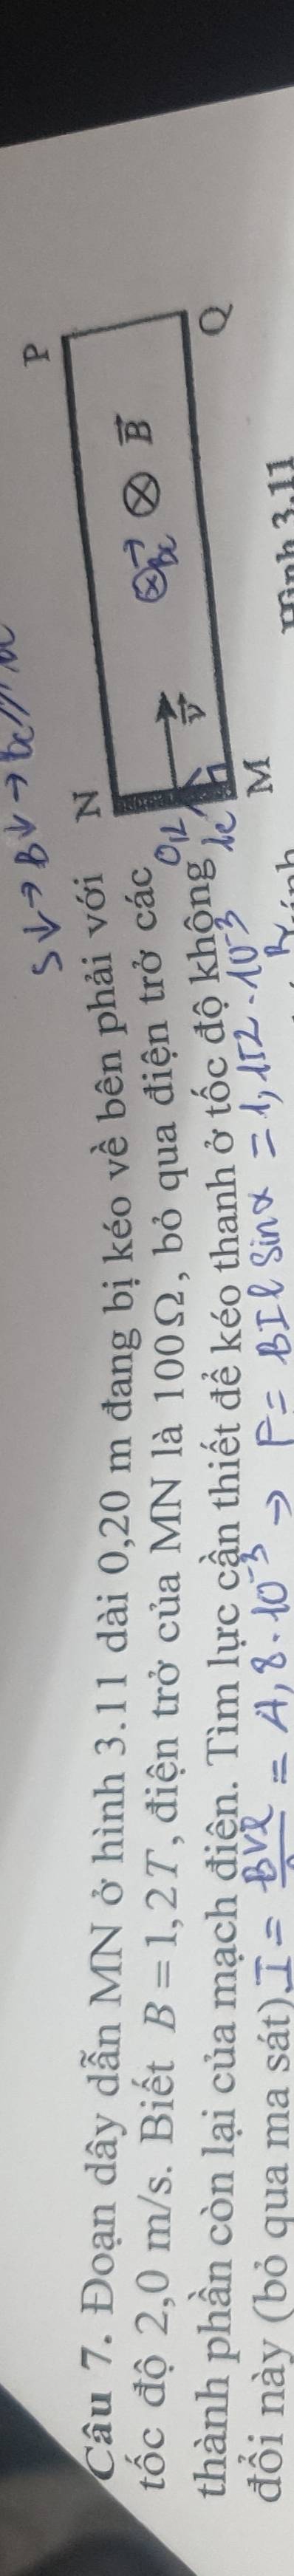 S↓→B↓→
Câu 7. Đoạn dây dẫn MN ở hình 3.11 dài 0,20 m đang bị kéo về bên phải với
tốc độ 2,0 m/s. Biết B = 1,2T, điện trở của MN là 100Ω, bỏ qua điện trở các
thành phần còn lại của mạch điện. Tìm lực cần thiết để kéo thanh ở tốc độ không
đổi này (bỏ qua ma sát).
I = BVl = 4,8.10⁻³ → F = BIl sinα = 1,152.10⁻³
N
P
0,2
v
B
M
Q
Hình 3.11